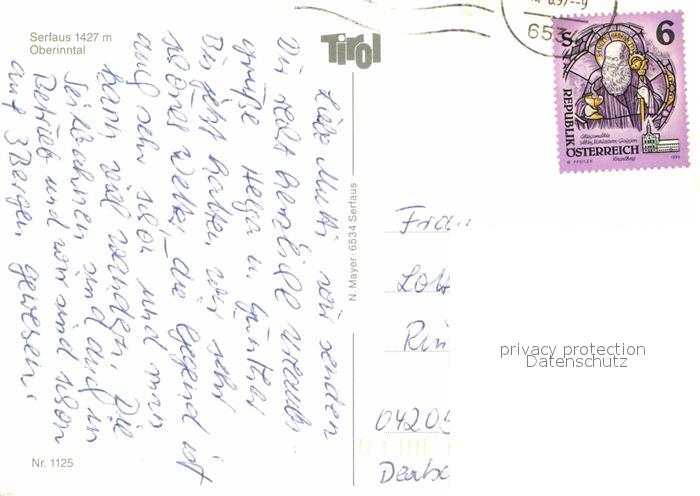 Serfaus 1427 m
Oberinntal
Tirol
Liebe Mutti, wir senden
Dir recht herzliche Urlaubs-
grüße Helga u. Günther
Bis jetzt hatten wir sehr
schönes Wetter, die Gegend ist
auch sehr schön und man
kann viel wandern. Die
Seilbahnen sind auch in
Betrieb und wir sind schon
auf 3 Bergen gewesen.
N. Mayer · 6534 Serfaus
Nr. 1125
653
6
REPUBLIK
ÖSTERREICH
Fra
Lot
Rin
04205
Deutsc
privacy protection
Datenschutz